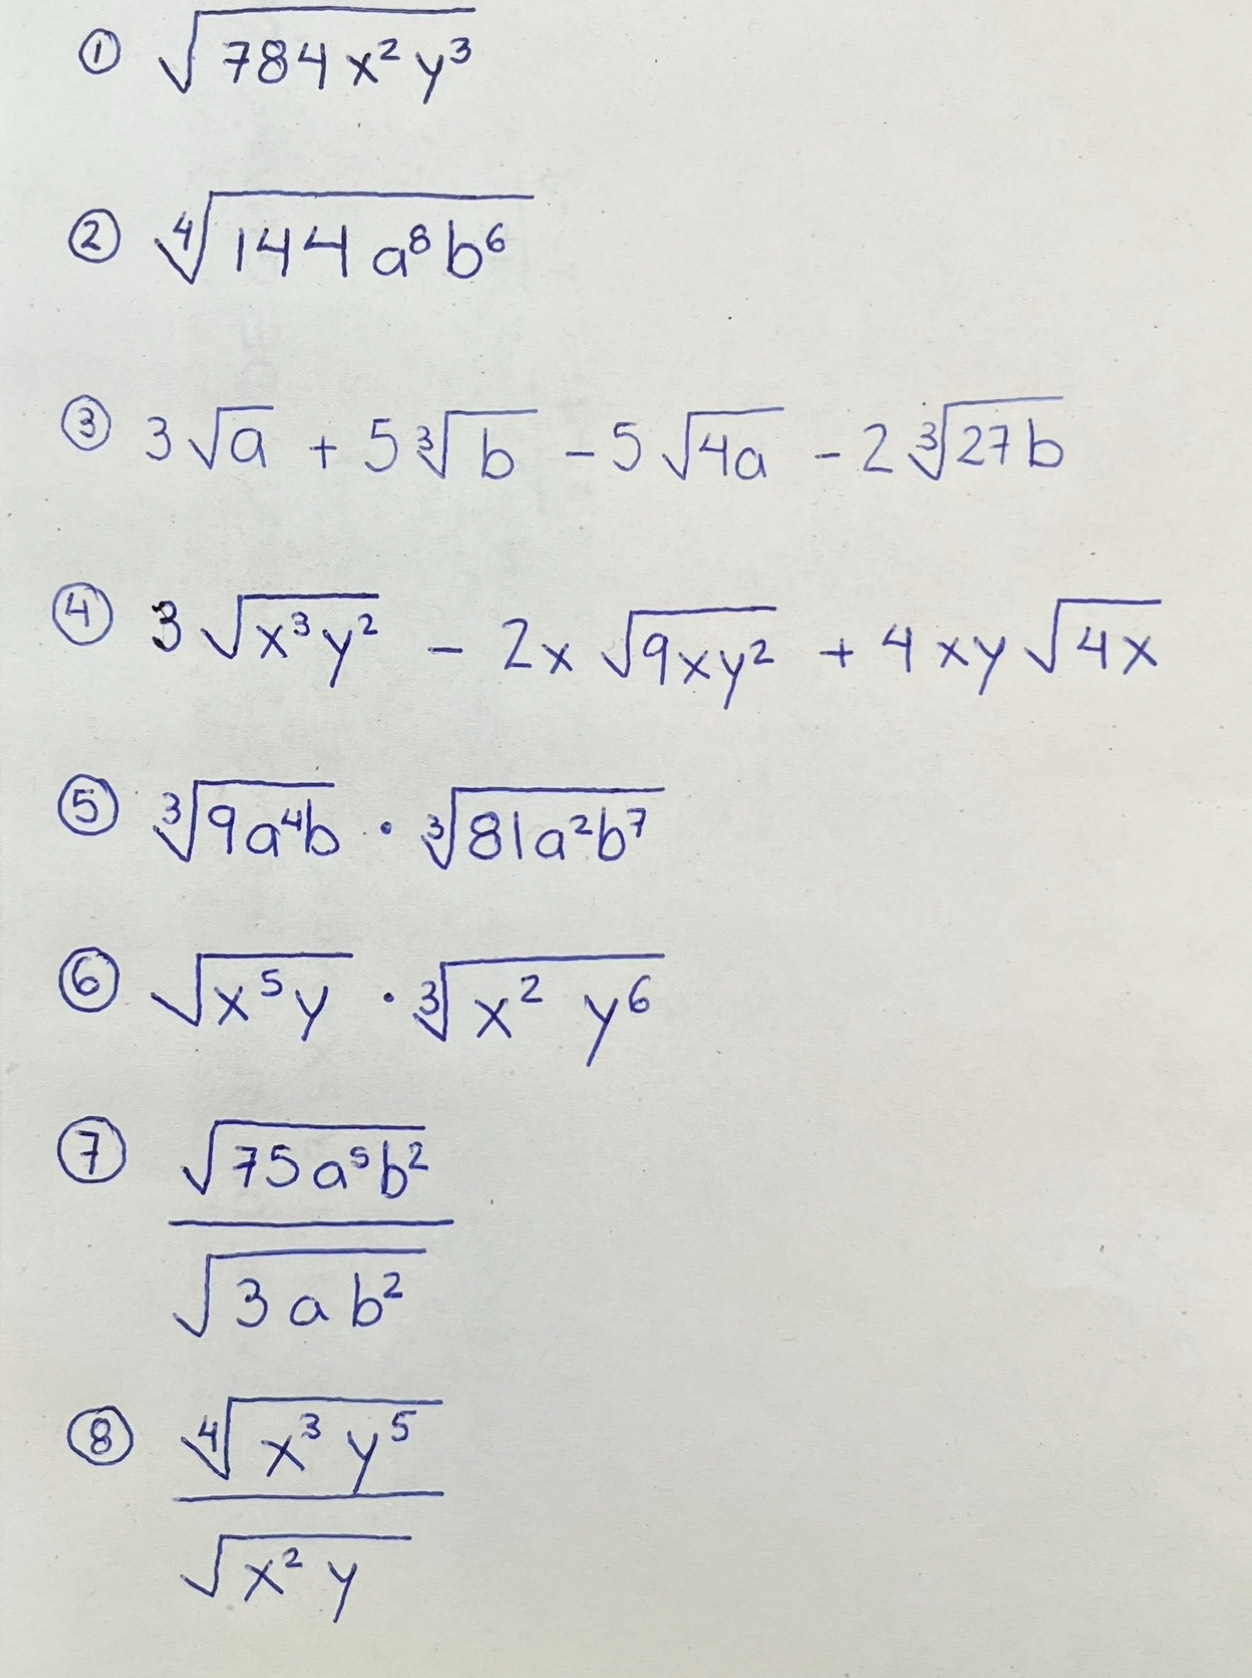 ① √(784x²y³)
② ⁴√(144a⁸b⁶)
③ 3√a + 5∛b - 5√(4a) - 2∛(27b)
④ 3√(x³y²) - 2x√(9xy²) + 4xy√(4x)
⑤ ∛(9a⁴b) · ∛(81a²b⁷)
⑥ √(x⁵y) · ∛(x² y⁶)
⑦ √(75a⁵b²)
√(3ab²)
⑧ ⁴√(x³y⁵)
√(x²y)